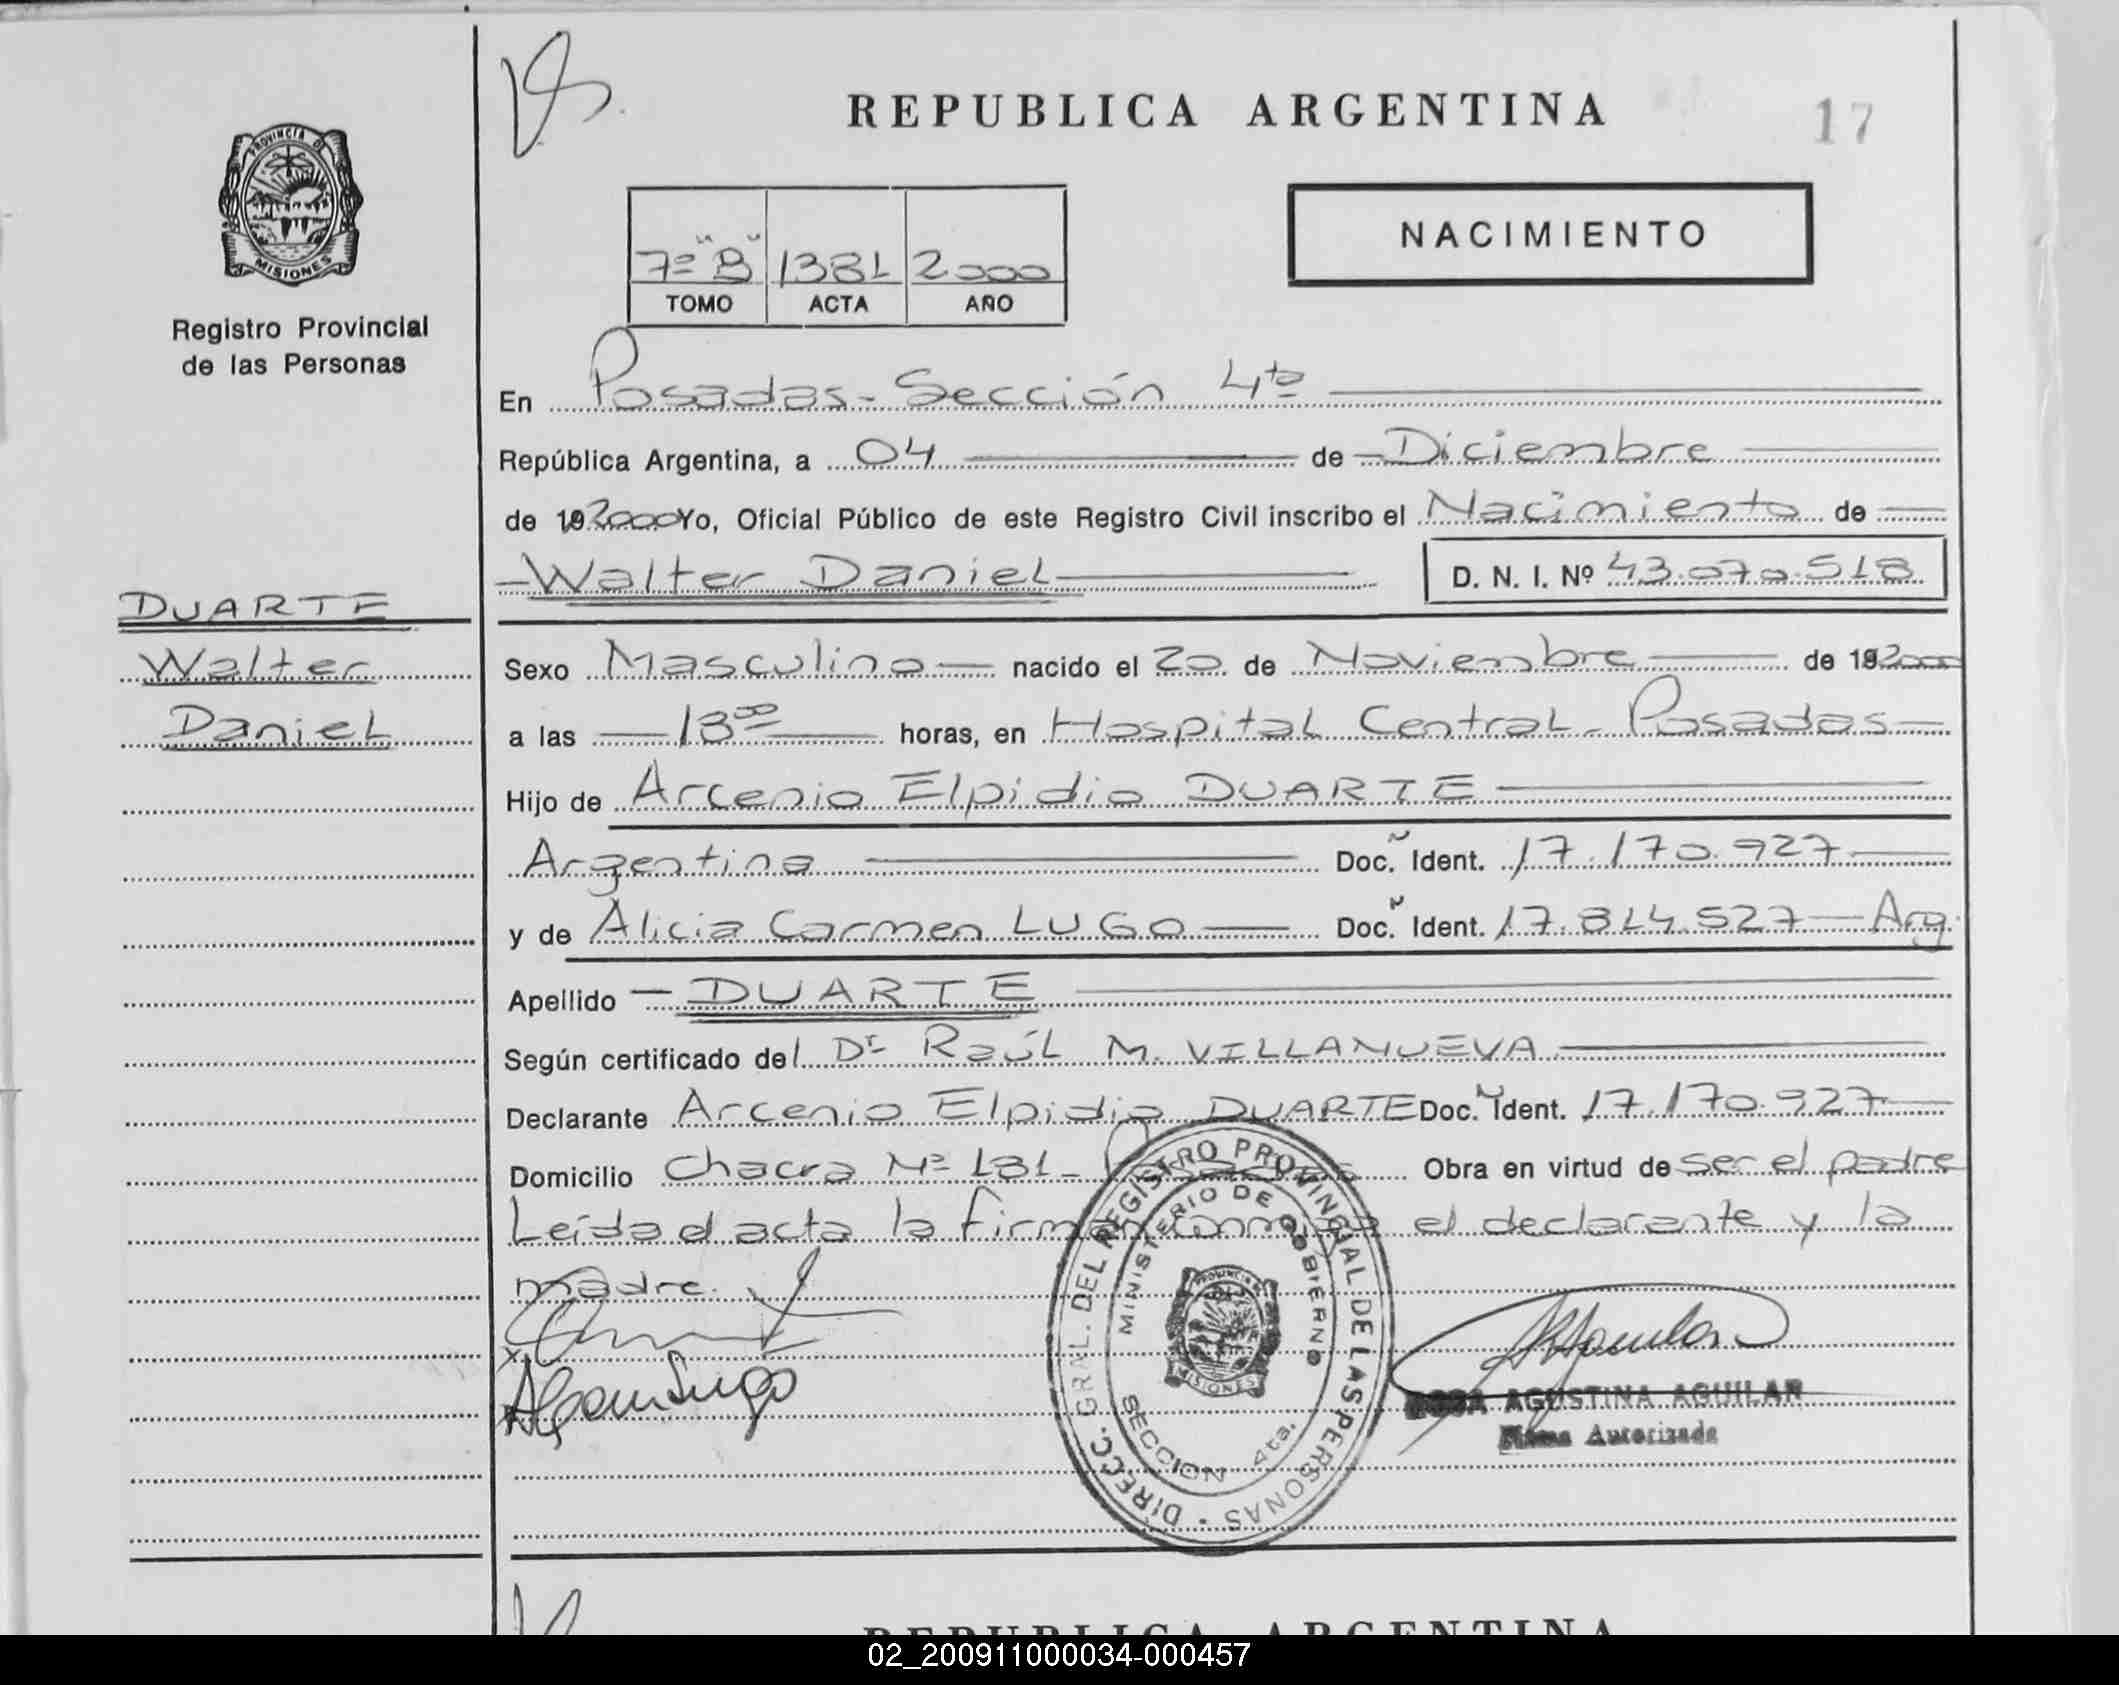 REPUBLICA ARGENTINA
17
PROVINCIA DE
MISIONES
Registro Provincial
de las Personas
7º "B" 1381 2000
TOMO ACTA AÑO
NACIMIENTO
En Posadas - Sección 4ta
República Argentina, a 04 de Diciembre
de 192000 Yo, Oficial Público de este Registro Civil inscribo el Nacimiento de
Walter Daniel
D. N. I. Nº 43.070.518
DUARTE
Walter
Daniel
Sexo Masculino nacido el 20 de Noviembre de 192000
a las 13⁰⁰ horas, en Hospital Central - Posadas
Hijo de Arcenio Elpidio DUARTE
Argentina Doc. Ident. 17.170.927
y de Alicia Carmen LUGO Doc. Ident. 17.814.527 - Arg.
Apellido DUARTE
Según certificado del Dr Raúl M. VILLANUEVA
Declarante Arcenio Elpidio DUARTE Doc. Ident. 17.170.927
Domicilio Chacra Nº 181 - Posadas Obra en virtud de ser el padre
Leída el acta la firman conmigo el declarante y la
madre.
DIRECC. GRAL. DEL REGISTRO PROVINCIAL DE LAS PERSONAS
MINISTERIO DE GOBIERNO
SECCION 4ta.
MISIONES
ROSA AGUSTINA AGUILAR
Firma Autorizada
REPUBLICA ARGENTINA
02_200911000034-000457